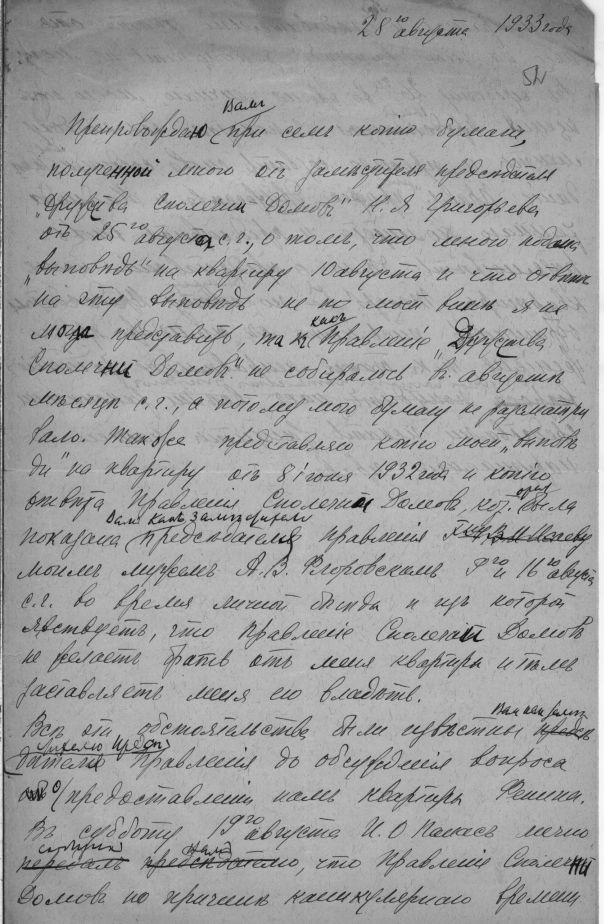 28го августа 1933 года
Вамъ
Препровождаю при семъ копію бумаги,
полученной мною отъ заместителя председателя
„Дружства Сполечни Домовъ" Н. Я Григорьева
отъ 25го августа с.г., о томъ, что мною подана
„выповѣдь" на квартиру 10 августа и что отвѣта
на эту выповѣдь не по моей винѣ я не
могла представить, такъ какъ Правленіе „Дружства
Сполечни Домовъ" не собиралось въ августѣ
мѣсяцѣ с.г., а потому мою бумагу не разматри
вало. Также представляю копію моей „выповѣ
ди" на квартиру отъ 8 іюня 1932 года и копію
отвѣта Правленія Сполечни Домовъ, кот. была
Вамъ какъ Заместителю
показана председателя Правленія
моимъ мужемъ А. В. Флоровскимъ 9го и 16го августа
с.г. во время личной бесѣды и изъ которой
явствуетъ, что Правленіе Сполечни Домовъ
не желаетъ брать отъ меня квартиры и тѣмъ
заставляетъ меня ею владѣть.
Всѣ эти обстоятельства были извѣстны Вам как Замѣ
стителю Предсѣ
дателя Правленія до обсужденія вопроса
о предоставленіи намъ квартиры Фешина.
Въ субботу 19го августа И. О Панасъ лично
сообщилъ Намъ, что Правленіе Сполечни
Домовъ по причинѣ каникулярнаго времени